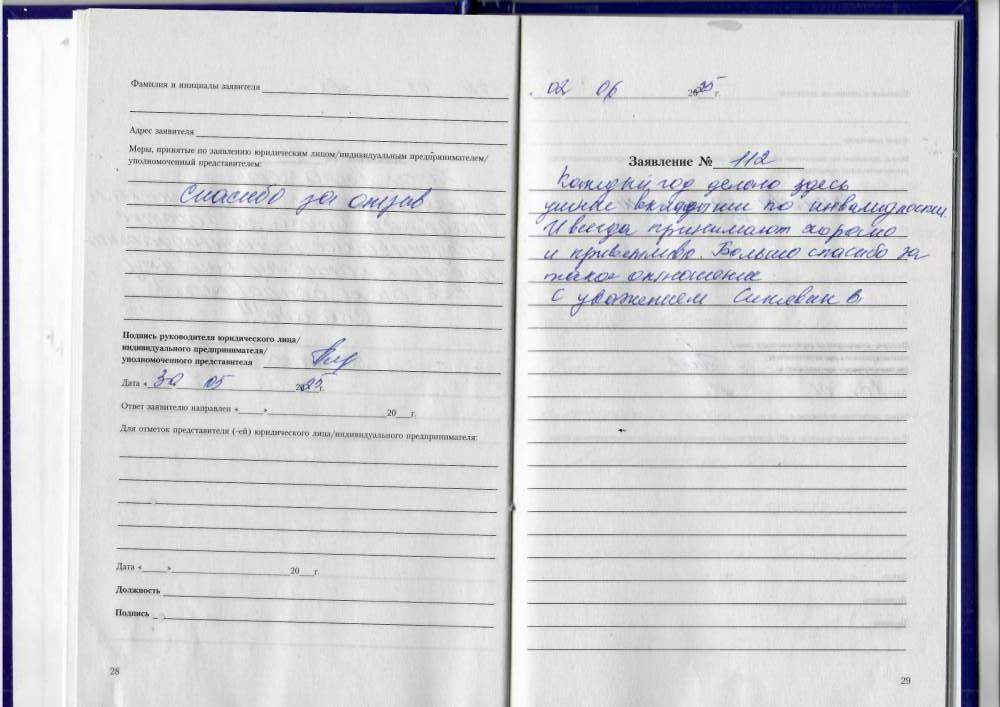 Фамилия и инициалы заявителя
Адрес заявителя
Меры, принятые по заявлению юридическим лицом/индивидуальным предпринимателем/
уполномоченный представителем:
Спасибо за отзыв
Подпись руководителя юридического лица/
индивидуального предпринимателя/
уполномоченного представителя
Дата « 30 05 2025 г.
Ответ заявителю направлен « » 20 г.
Для отметок представителя (-ей) юридического лица/индивидуального предпринимателя:
Дата « » 20 г.
Должность
Подпись
28
02 06 2025 г.
Заявление № 112
Каждый год делаю здесь
ушные вкладыши по инвалидности.
И всегда принимают хорошо
и приветливо. Большо спасибо за
такое отношение
С уважением
29